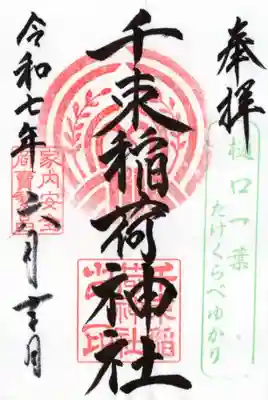 奉拝
樋口一葉
たけくらべゆかり
千束稲荷神社
千束稲荷神社之印
令和七年 月吉日
家内安全